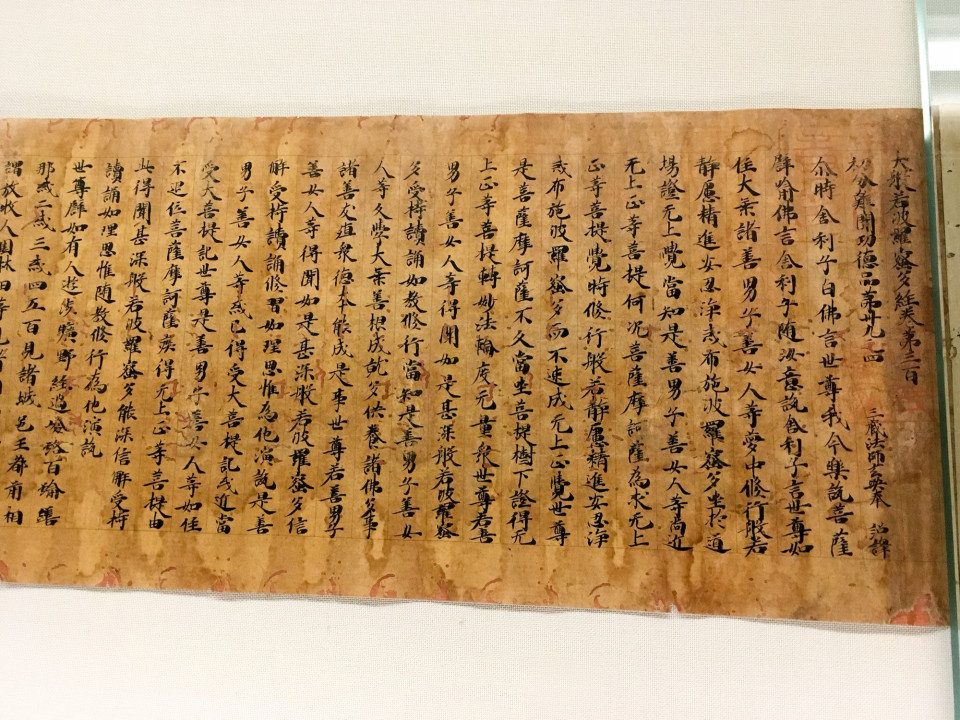 大般若波羅蜜多經卷第三百
初分難聞功德品第卅九之四 三藏法師玄奘奉 詔譯
尒時舍利子白佛言世尊我今樂說菩薩
譬喻佛言舍利子随汝意說舍利子言世尊如
住大乗諸善男子善女人等夢中修行般若
靜慮精進安忍淨戒布施波羅蜜多坐於道
場證无上覺當知是善男子善女人等尚近
无上正等菩提何况菩薩摩訶薩為求无上
正等菩提覺時修行般若靜慮精進安忍淨
戒布施波羅蜜多而不速成无上正覺世尊
是菩薩摩訶薩不久當坐菩提樹下證得无
上正等菩提轉妙法輪度无量衆世尊若善
男子善女人等得聞如是甚深般若波羅蜜
多受持讀誦如教修行當知是善男子善女
人等久學大乗善根成就多供養諸佛多事
諸善友殖衆德本能成是事世尊若善男子
善女人等得聞如是甚深般若波羅蜜多信
解受持讀誦修習如理思惟為他演說是善
男子善女人等或已得受大菩提記或近當
受大菩提記世尊是善男子善女人等如住
不退位菩薩摩訶薩疾得无上正等菩提由
此得聞甚深般若波羅蜜多能深信解受持
讀誦如理思惟随教修行為他演說
世尊譬如有人遊涉曠野經過險路百踰繕
那或二或三或四五百見諸城邑王都前相
謂放牧人園林田等